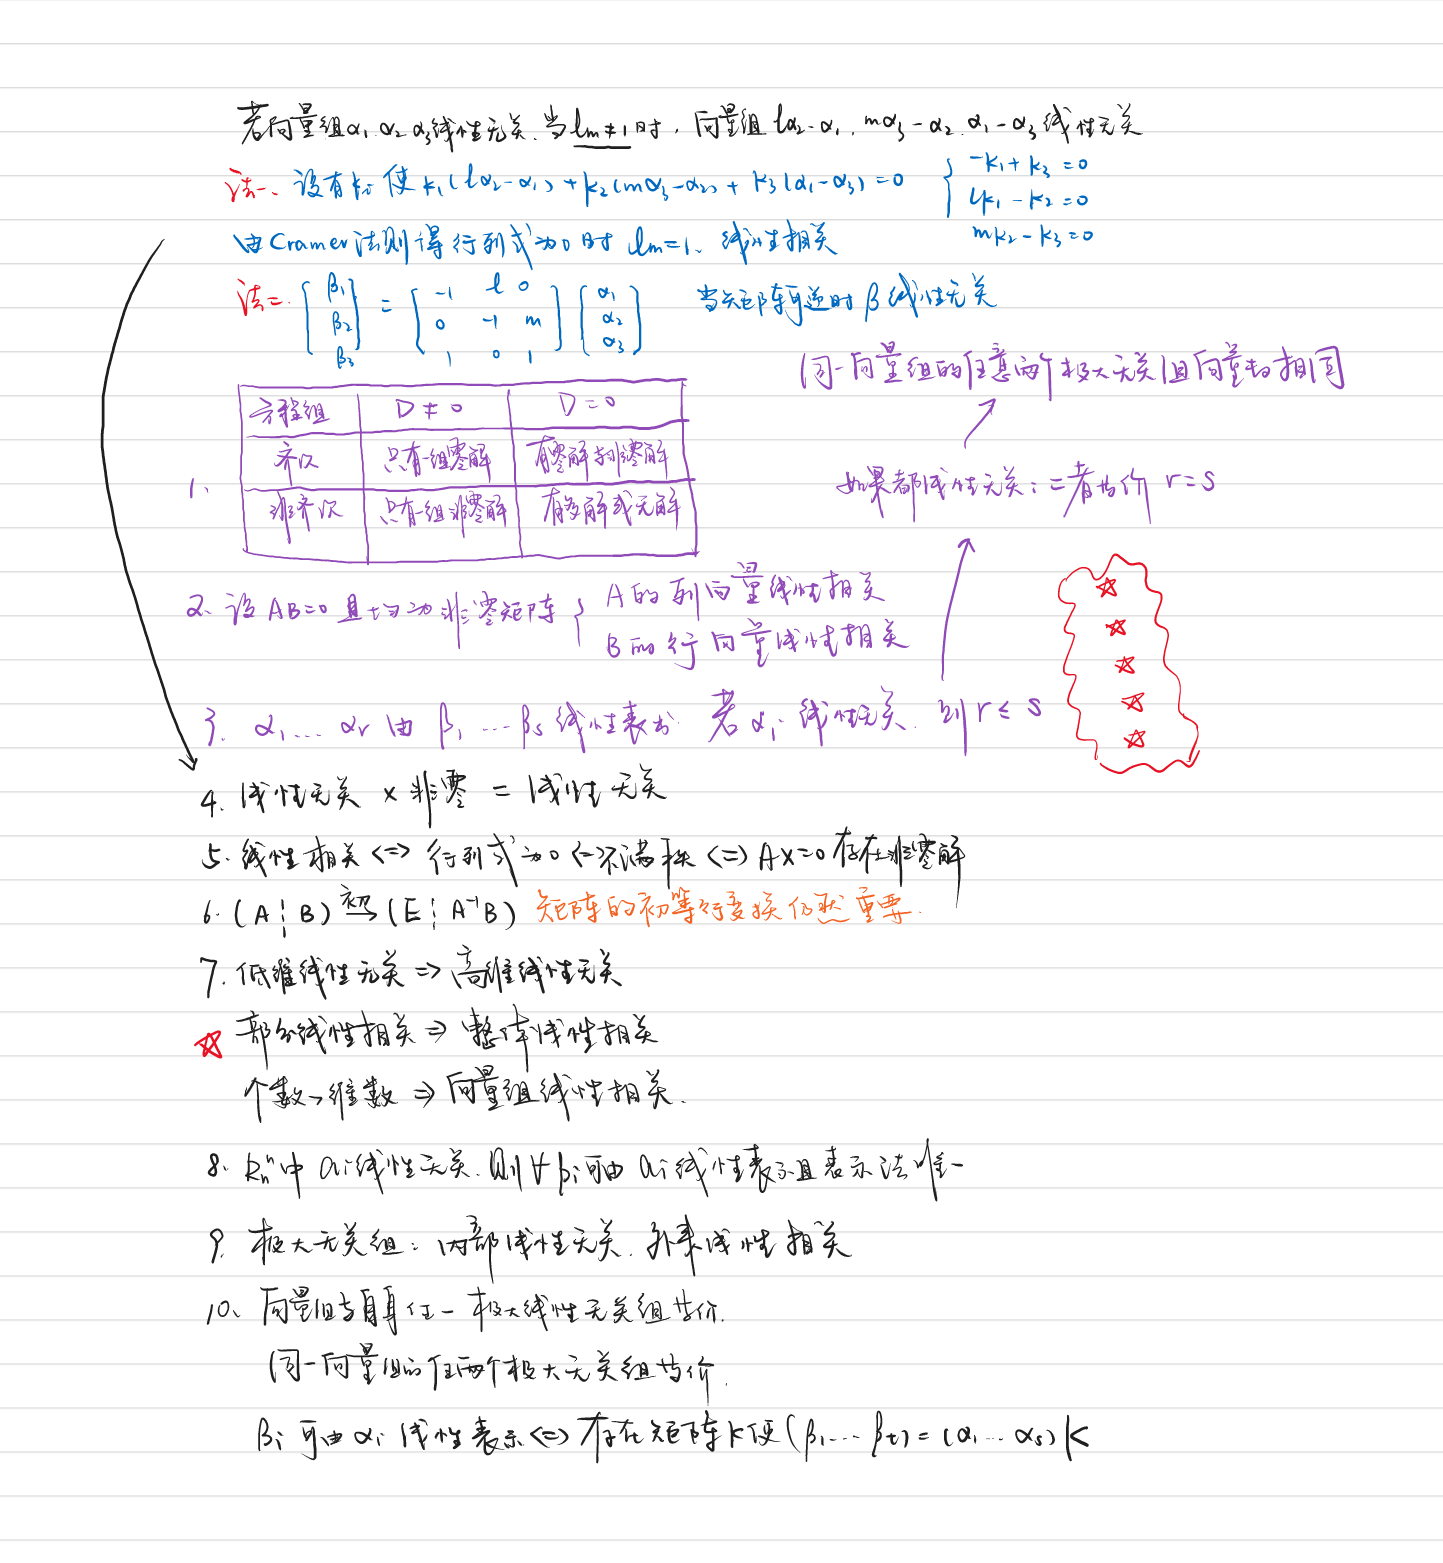 若向量组α₁ α₂ α₃线性无关.当lm≠1时，向量组 lα₂-α₁, mα₃-α₂, α₁-α₃ 线性无关
法一、设有kᵢ 使 k₁(lα₂-α₁)+k₂(mα₃-α₂)+k₃(α₁-α₃)=0 { -k₁+k₃=0
lk₁-k₂=0
mk₂-k₃=0
由Cramer法则得行列式为0时 lm=1、线性相关
法二. [β₁ β₂ β₃] = [-1 l 0
0 -1 m
1 0 1] [α₁ α₂ α₃] 当矩阵可逆时β线性无关
同一向量组的任意两个极大无关组向量均相同
方程组 D≠0 D=0
齐次 只有一组零解 有零解和非零解
1. 非齐次 只有一组非零解 有多解或无解
如果都线性无关:二者等价 r=s
2. 设AB=0 且均为非零矩阵 { A的列向量线性相关
B的行向量线性相关
3. α₁…αr 由 β₁…βs线性表出 若αᵢ线性无关 则r≤s
4. 线性无关 × 非零 = 线性无关
5. 线性相关 <=> 行列式为0 <=> 不满秩 <=> AX=0存在非零解
6. (A¦B) 初 (E¦A⁻¹B) 矩阵的初等行变换仍然重要.
7. 低维线性无关 => 高维线性无关
部分线性相关 => 整体线性相关
个数>维数 => 向量组线性相关.
8. 中 aᵢ线性无关.则∀βᵢ可由 aᵢ线性表示且表示法唯一
9. 极大无关组: 内部线性无关. 外来线性相关
10、向量组与自身任一极大线性无关组等价.
同一向量组的任两个极大无关组等价.
βᵢ可由αᵢ 线性表示<=> 存在矩阵K使(β₁…βt)=(α₁…αs)K